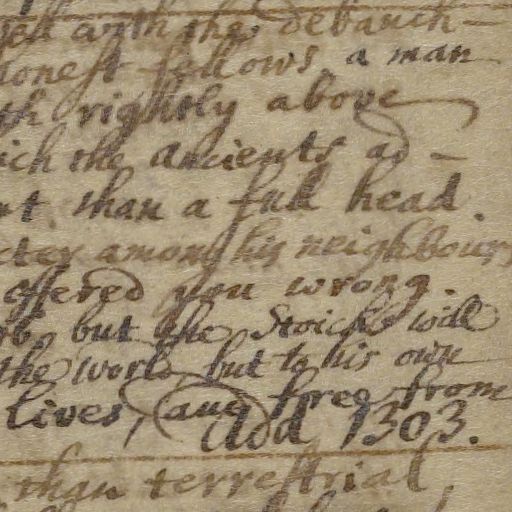 with the debauch-
honest fellows, a man
rightly above
ich the Ancients ad-
nt than a full head.
cter among his neighbours
offered you wrong.
but the Stoicks will
the world, but to his own
lives, and free from
Add 1303.
than terrestrial,